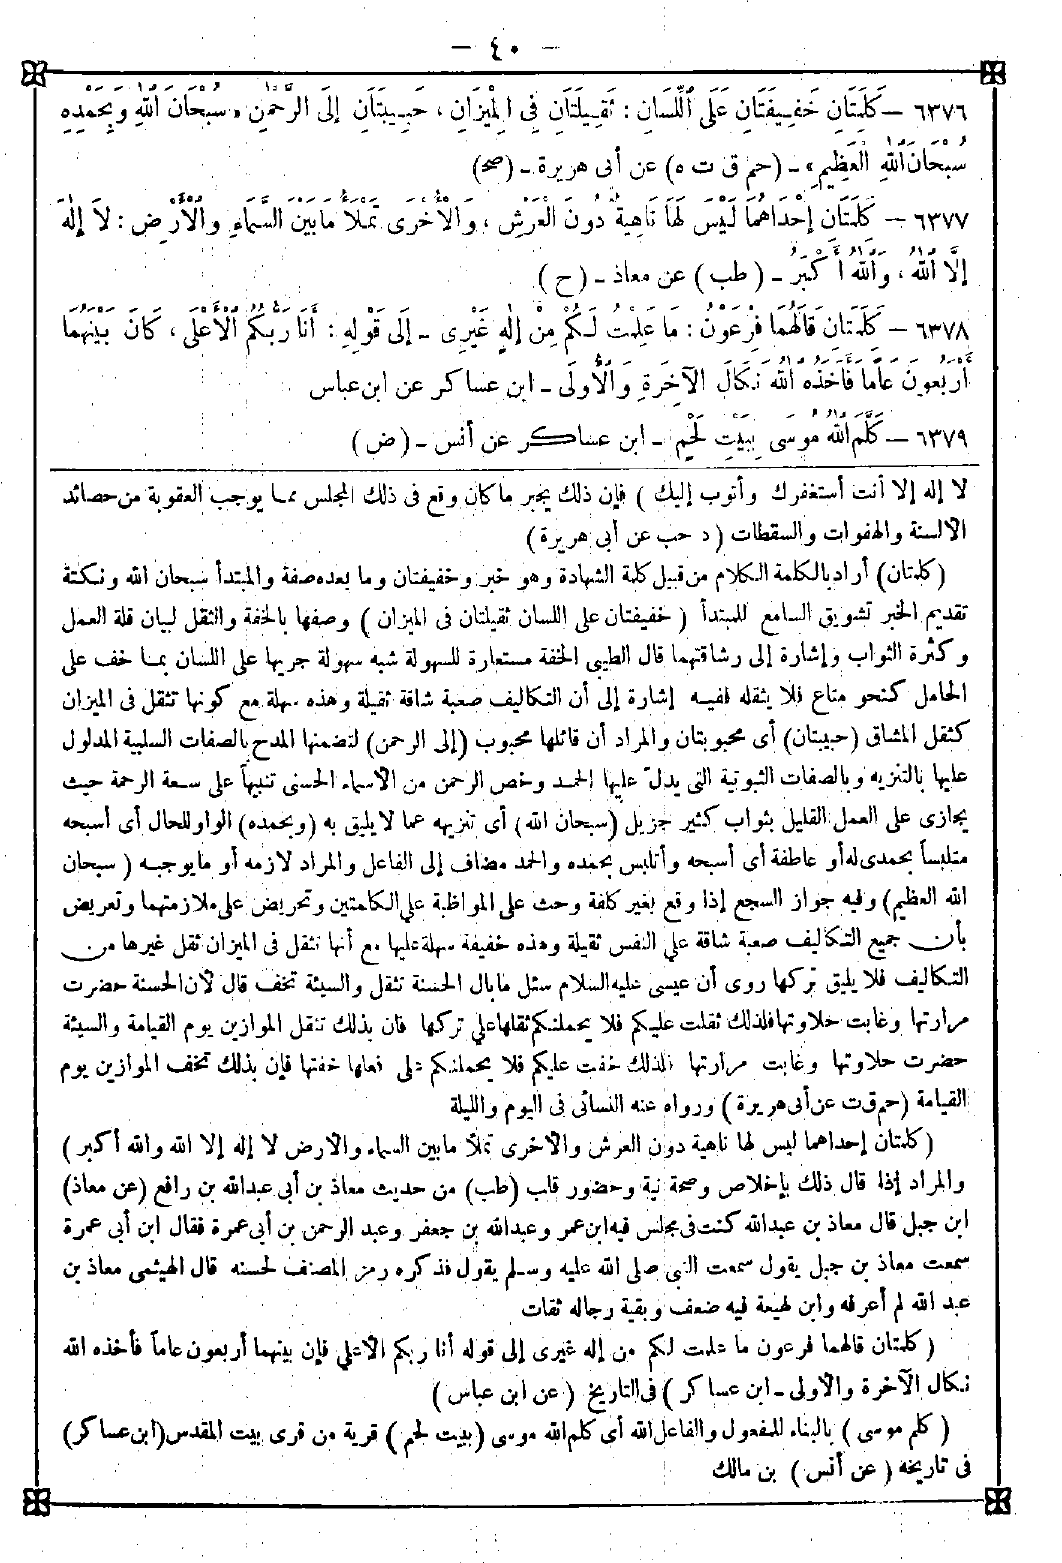 - ٤٠ -
٦٣٧٦ - كَلِمَتَانِ خَفِيفَتَانِ عَلَى اللِّسَانِ : ثَقِيلَتَانِ فِى الْمِيْزَانِ ، حَبِيبَتَانِ إِلَى الرَّحْمٰنِ « سُبْحَانَ اللهِ وَبِحَمْدِهِ
سُبْحَانَ اللهِ الْعَظِيمِ » - (حم ق ت ه) عن أبى هريرة - (صح)
٦٣٧٧ - كَلِمَتَانِ إِحْدَاهُمَا لَيْسَ لَهَا نَاهِيةٌ دُونَ الْعَرْشِ ، وَالْأُخْرَى تَمْلَأُ مَا بَيْنَ السَّمَاءِ وَالْأَرْضِ : لاَ إِلٰهَ
إِلَّا اللهُ ، وَاللهُ أَكْبَرُ - ( طب ) عن معاذ - ( ح )
٦٣٧٨ - كَلِمَتَانِ قَالَهُمَا فِرْعَوْنُ : مَا عَلِمْتُ لَكُمْ مِنْ إِلٰهٍ غَيْرِى - إِلَى قَوْلِهِ : أَنَا رَبُّكُمُ الْأَعْلَى ، كَانَ بَيْنَهُمَا
أَرْبَعُونَ عَامًا فَأَخَذَهُ اللهُ نَكَالَ الآخِرَةِ وَالْأُولَى - ابن عساكر عن ابن عباس
٦٣٧٩ - كَلَّمَ اللهُ مُوسَى بِبَيْتِ لَحْمٍ - ابن عساكر عن أنس - ( ض )
لا إله إلا أنت أستغفرك وأتوب إليك ) فإن ذلك يجبر ما كان وقع فى ذلك المجلس مما يوجب العقوبة من حصائد
الألسنة والهفوات والسقطات ( د حب عن أبى هريرة )
(كلمتان) أراد بالكلمة الكلام من قبيل كلمة الشهادة وهو خبر وخفيفتان وما بعده صفة والمبتدأ سبحان الله ونكتة
تقديم الخبر تشويق السامع للمبتدأ ( خفيفتان على اللسان ثقيلتان فى الميزان ) وصفها بالخفة والثقل لبيان قلة العمل
وكثرة الثواب وإشارة إلى رشاقتهما قال الطيبى الخفة مستعارة للسهولة شبه سهولة جريها على اللسان بما خف على
الحامل كنحو متاع فلا يثقله ففيه إشارة إلى أن التكاليف صعبة شاقة ثقيلة وهذه سهلة مع كونها تثقل فى الميزان
كثقل المشاق (حبيبتان) أى محبوبتان والمراد أن قائلها محبوب (إلى الرحمن) لتضمنها المدح بالصفات السلبية المدلول
عليها بالتنزيه وبالصفات الثبوتية التى يدلّ عليها الحمد وخص الرحمن من الأسماء الحسنى تنبيهاً على سعة الرحمة حيث
يجازى على العمل القليل بثواب كثير جزيل (سبحان الله) أى تنزيهه عما لا يليق به (وبحمده) الواو للحال أى أسبحه
متلبساً بحمدى له أو عاطفة أى أسبحه وأتلبس بحمده والحمد مضاف إلى الفاعل والمراد لازمه أو ما يوجبه ( سبحان
الله العظيم) وفيه جواز السجع إذا وقع بغير كلفة وحث على المواظبة على الكلمتين وتحريض على ملازمتهما وتعريض
بأن جميع التكاليف صعبة شاقة على النفس ثقيلة وهذه خفيفة سهلة عليها مع أنها تثقل فى الميزان ثقل غيرها من
التكاليف فلا يليق تركها روى أن عيسى عليه السلام سئل ما بال الحسنة تثقل والسيئة تخف قال لأن الحسنة حضرت
مرارتها وغابت حلاوتها فلذلك ثقلت عليكم فلا يحملنكم ثقلها على تركها فان بذلك تثقل الموازين يوم القيامة والسيئة
حضرت حلاوتها وغابت مرارتها فلذلك خفت عليكم فلا يحملنكم على فعلها خفتها فإن بذلك تخف الموازين يوم
القيامة (حم ق ت عن أبى هريرة ) ورواه عنه النسائى فى اليوم والليلة
( كلمتان إحداهما ليس لها ناهية دون العرش والأخرى تملأ ما بين السماء والأرض لا إله إلا الله والله أكبر )
والمراد إذا قال ذلك بإخلاص وصحة نية وحضور قلب (طب) من حديث معاذ بن أبى عبدالله بن رافع (عن معاذ)
ابن جبل قال معاذ بن عبدالله كنت فى مجلس فيه ابن عمر وعبدالله بن جعفر وعبد الرحمن بن أبى عمرة فقال ابن أبى عمرة
سمعت معاذ بن جبل يقول سمعت النبى صلى الله عليه وسلم يقول فذكره رمز المصنف لحسنه قال الهيثمى معاذ بن
عبد الله لم أعرفه وابن لهيعة فيه ضعف وبقية رجاله ثقات
( كلمتان قالهما فرعون ما علمت لكم من إله غيرى إلى قوله أنا ربكم الأعلى فإن بينهما أربعون عاماً فأخذه الله
نكال الآخرة والأولى - ابن عساكر ) فى التاريخ ( عن ابن عباس )
( كلم موسى ) بالبناء للمفعول والفاعل الله أى كلم الله موسى (ببيت لحم ) قرية من قرى بيت المقدس (ابن عساكر)
فى تاريخه ( عن أنس ) بن مالك